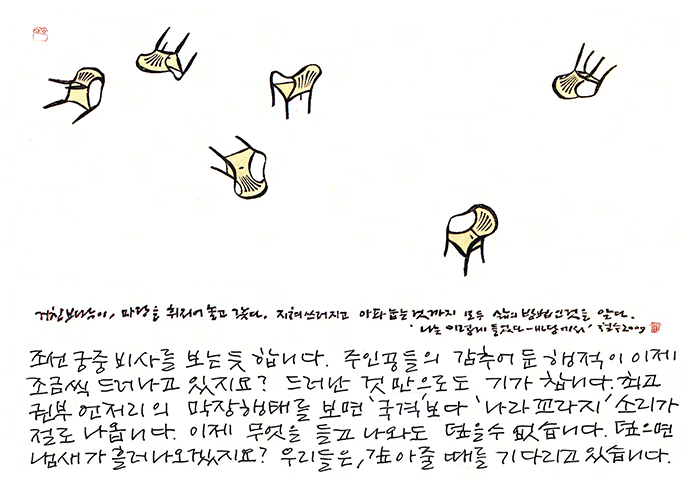 거친 바람이, 마당을 휘저어 놓고 갔다. 지쳐 쓰러지고 아파 눕는 것까지 모두 삶의 방법인 것을 알다.
'나는 이렇게 들었다 - 마당에서' 철수 2009
조선 궁중 비사를 보는 듯 합니다. 주인공들의 감추어 둔 행적이 이제
조금씩 드러나고 있지요? 드러난 것 만으로도 기가 찹니다. 최고
권부 언저리의 막장행태를 보면 '국격'보다 '나라 꼬라지' 소리가
절로 나옵니다. 이제 무엇을 들고 나와도 덮을수 없습니다. 덮으면
냄새가 흘러 나오겠지요? 우리들은, 갚아줄 때를 기다리고 있습니다.